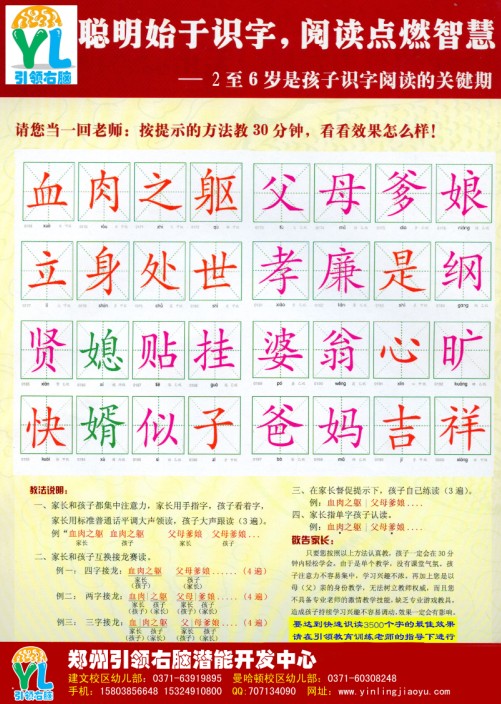 YL
引领右脑
聪明始于识字，阅读点燃智慧
—— 2至6岁是孩子识字阅读的关键期
请您当一回老师：按提示的方法教30分钟，看看效果怎么样！
血肉之躯 父母爹娘
立身处世 孝廉是纲
贤媳贴挂 婆翁心旷
快婿似子 爸妈吉祥
教法说明：
一、家长和孩子都集中注意力，家长用手指字，孩子看着字，
家长用标准普通话平调大声领读，孩子大声跟读（3遍）。
例“血肉之躯 血肉之躯 父母爹娘 父母爹娘....
家长 孩子 家长 孩子
二、家长和孩子互换接龙赛读。
例一：四字接龙：血肉之躯 父母爹娘......（4遍）
家长 孩子
(孩子) (家长)
例二：两字接龙：血肉之躯 父母爹娘....（4遍）
家长 孩子 家长 孩子
(孩子)(家长) (孩子)(家长)
例三：三字接龙：血肉之躯 父母爹娘....（4遍）
家长 孩子 家长
(孩子) (家长) (孩子)
三、在家长督促提示下，孩子自己练读（3遍）。
例：血肉之躯 父母爹娘....
四、家长指单字孩子认读。
例：血肉之躯 父母爹娘....
敬告家长：
只要您按照以上方法认真教，孩子一定会在30分
钟内轻松学会。由于是单个教学，没有课堂气氛，孩
子注意力不容易集中，学习兴趣不浓，再加上您是以
母（父）亲的身份教学，无法树立教师权威，而且您
不具备专业老师的激情教学技能，缺乏专业游戏教具，
造成孩子持续学习兴趣不容易调动，效果一定会有影响。
要达到快速识读3500个字的最佳效果
请在引领教育训练老师的指导下进行
YL
引领右脑
郑州引领右脑潜能开发中心
建文校区幼儿部：0371-63919895 曼哈顿校区幼儿部：0371-60308248
手机：15803856648 15324910800 QQ:707134090 网址：www.yinlingjiaoyu.com